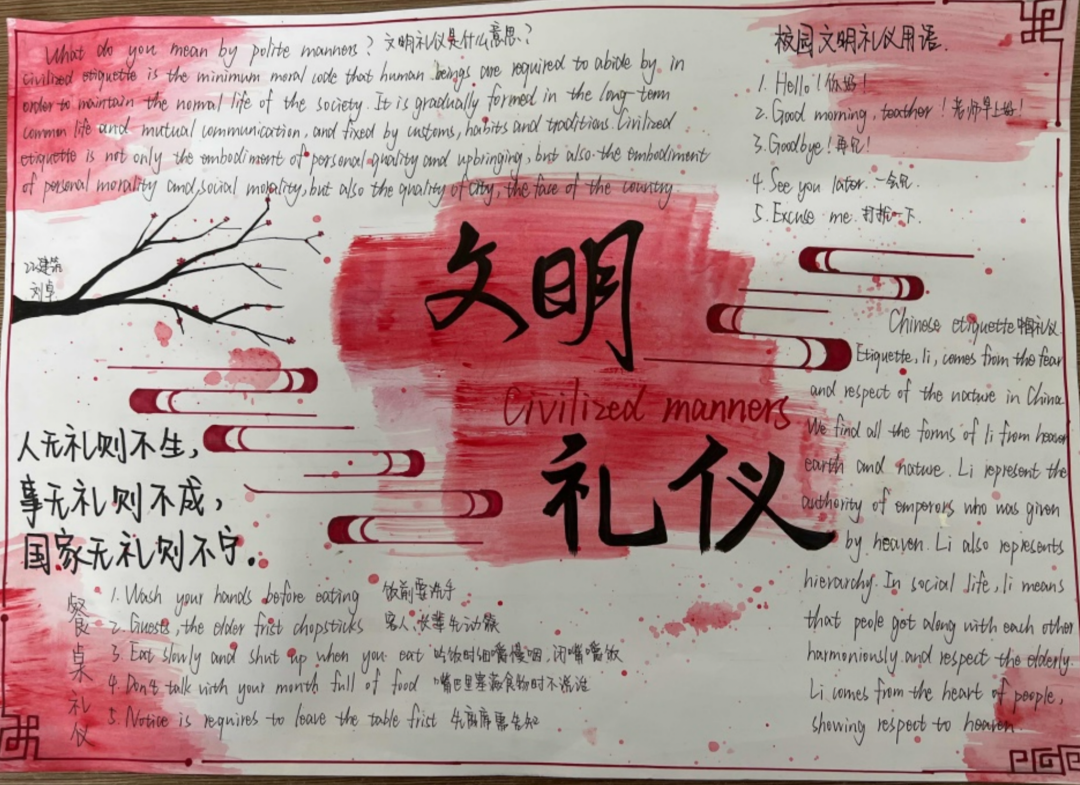 What do you mean by polite manners? 文明礼仪是什么意思?
Civilized etiquette is the minimum moral code that human beings are required to abide by in
order to maintain the normal life of the society. It is gradually formed in the long-term
common life and mutual communication, and fixed by customs, habits and traditions. Civilized
etiquette is not only the embodiment of personal quality and upbringing, but also the embodiment
of personal morality and social morality, but also the quality of city, the face of the country.
校园文明礼仪用语.
1. Hello! 你好!
2. Good morning, teacher! 老师早上好!
3. Goodbye! 再见!
4. See you later. 一会见.
5. Excuse me. 打扰一下.
22建筑
刘卓
文明
Civilized manners
礼仪
人无礼则不生,
事无礼则不成,
国家无礼则不宁。
Chinese etiquette 中国礼仪
Etiquette, li, comes from the fear
and respect of the nature in China
We find all the forms of li from heaven
earth and nature. Li represent the
authority of emperors who was given
by heaven. Li also represents
hierarchy. In social life, li means
that peole get along with each other
harmoniously and respect the elderly.
Li comes from the heart of people,
showing respect to heaven
餐桌礼仪
1. Wash your hands before eating 饭前要洗手
2. Guests, the elder frist chopsticks 客人、长辈先动筷
3. Eat slowly and shut up when you eat 吃饭时细嚼慢咽,闭嘴嚼饭
4. Don't talk with your month full of food 嘴巴里塞满食物时不说话
5. Notice is requires to leave the table frist 先离席需告知